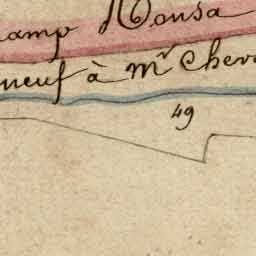 champ Housa
neuf à Mr Cheva
49